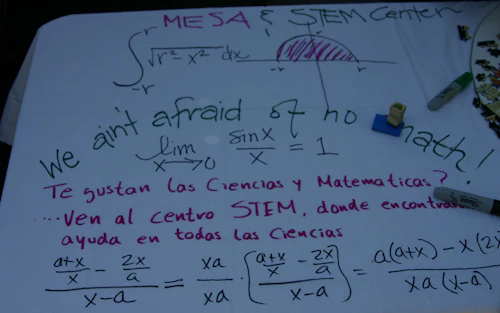 MESA & STEM Center
∫_{-r}^{r} √(r² - x²) dx
-r r
We ain't afraid of no math!
lim_{x→0} sin x / x = 1
Te gustan las Ciencias y Matematicas?
....Ven al centro STEM, donde
ayuda en todas las Ciencias
((a+x)/x - 2x/a) / (x-a) = xa/xa · (((a+x)/x - 2x/a) / (x-a)) = a(a+x) - x(2x / xa(x-a)